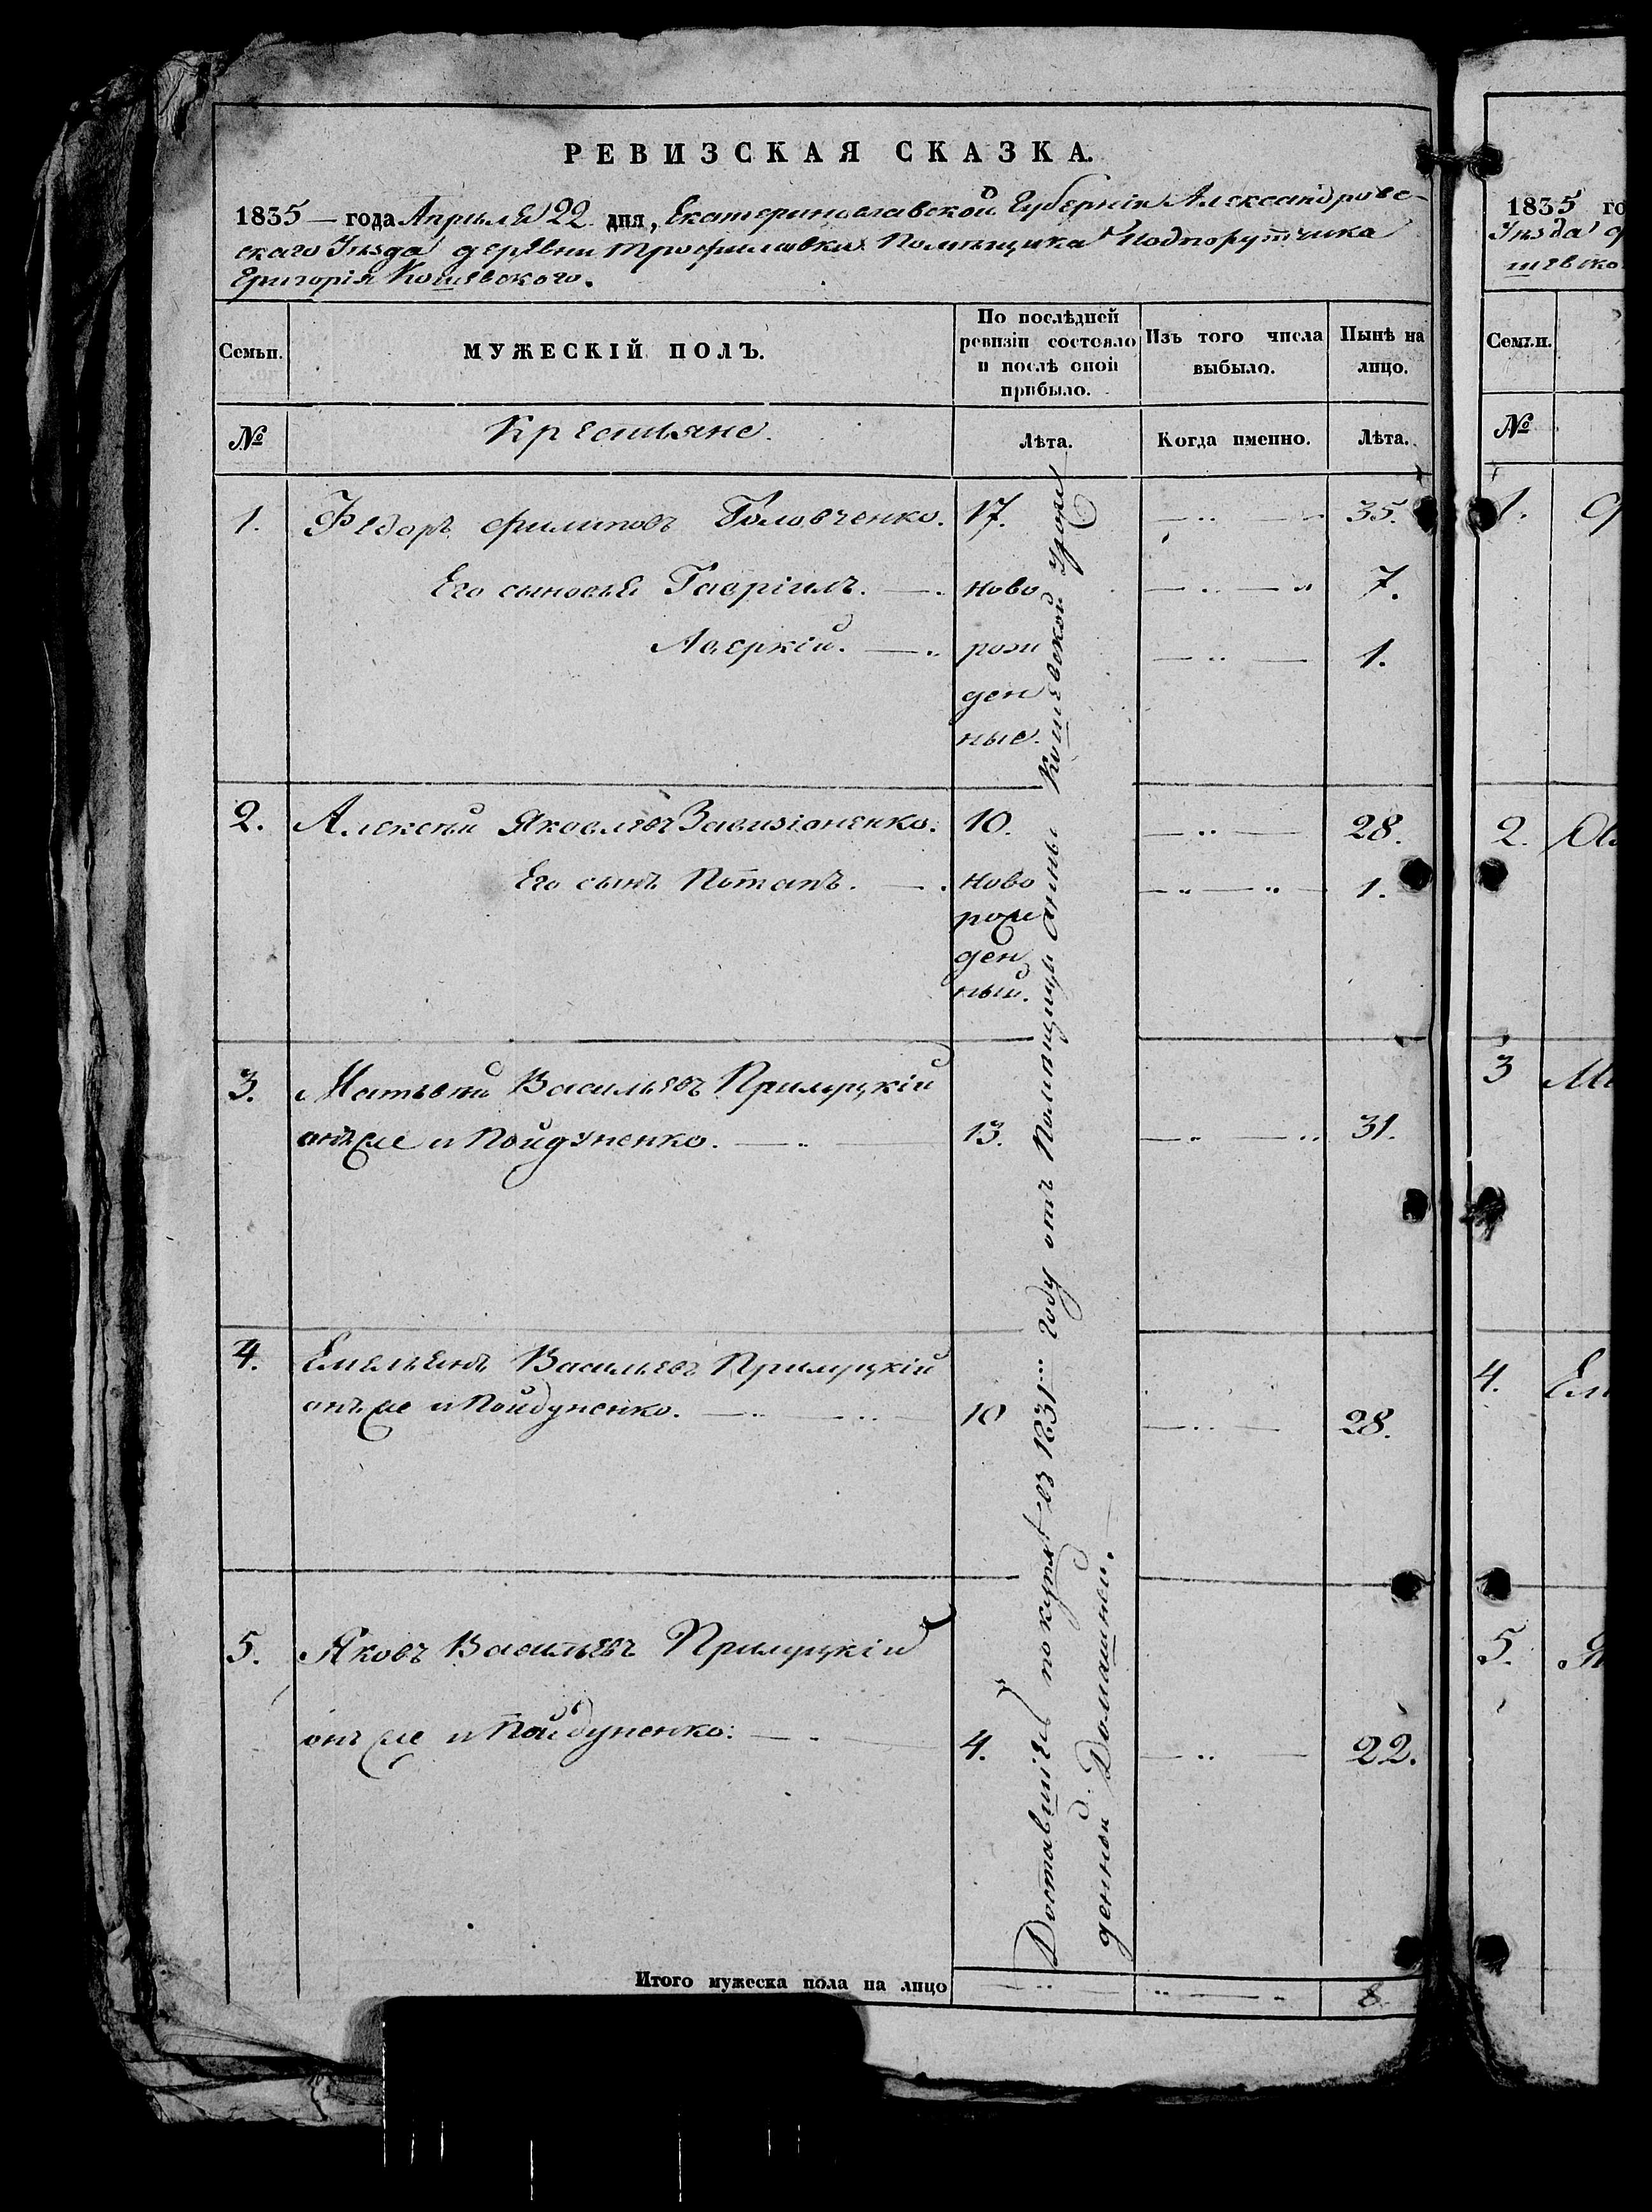 РЕВИЗСКАЯ СКАЗКА.
1835 — года Апреля 22 дня, Екатеринославской Губерніи Александровс-
скаго Уѣзда деревни Трофимовки Помѣщика Подпорутчика
Григорія Кошевского.
Семьи.
МУЖЕСКІЙ ПОЛЪ.
По послѣдней
ревизіи состояло
и послѣ оной
прибыло.
Изъ того числа
выбыло.
Нынѣ на
лицо.
№
Крестьяне.
Лѣта.
Когда именно.
Лѣта.
1. Федоръ Филиповъ Головченко. 17. 35.
Его сыновья Гавріилъ. ново 7.
Аверкій. рож 1.
ден
ные.
2. Алексѣй Яковлевъ 10. 28.
Его сынъ Потапъ. ново 1.
рож
ден
ный.
3. Матвѣй Васильевъ Прилуцкій
онъ же и Пойдуненко. 13. 31.
4. Емельянъ Васильевъ Прилуцкій
онъ же и Пойдуненко. 10 28.
5. Яковъ Васильевъ Прилуцкій
онъ же и Пойдуненко. 4. 22.
Доставшіеся по купле въ 1831 году отъ Помѣщицы Анны Кошевской урож
денной Домашней.
Итого мужеска пола на лицо 8.
1835 го
Уѣзда д
шевско
Семьи.
№
1.
2.
3 Ма
4. Ем
5. Я